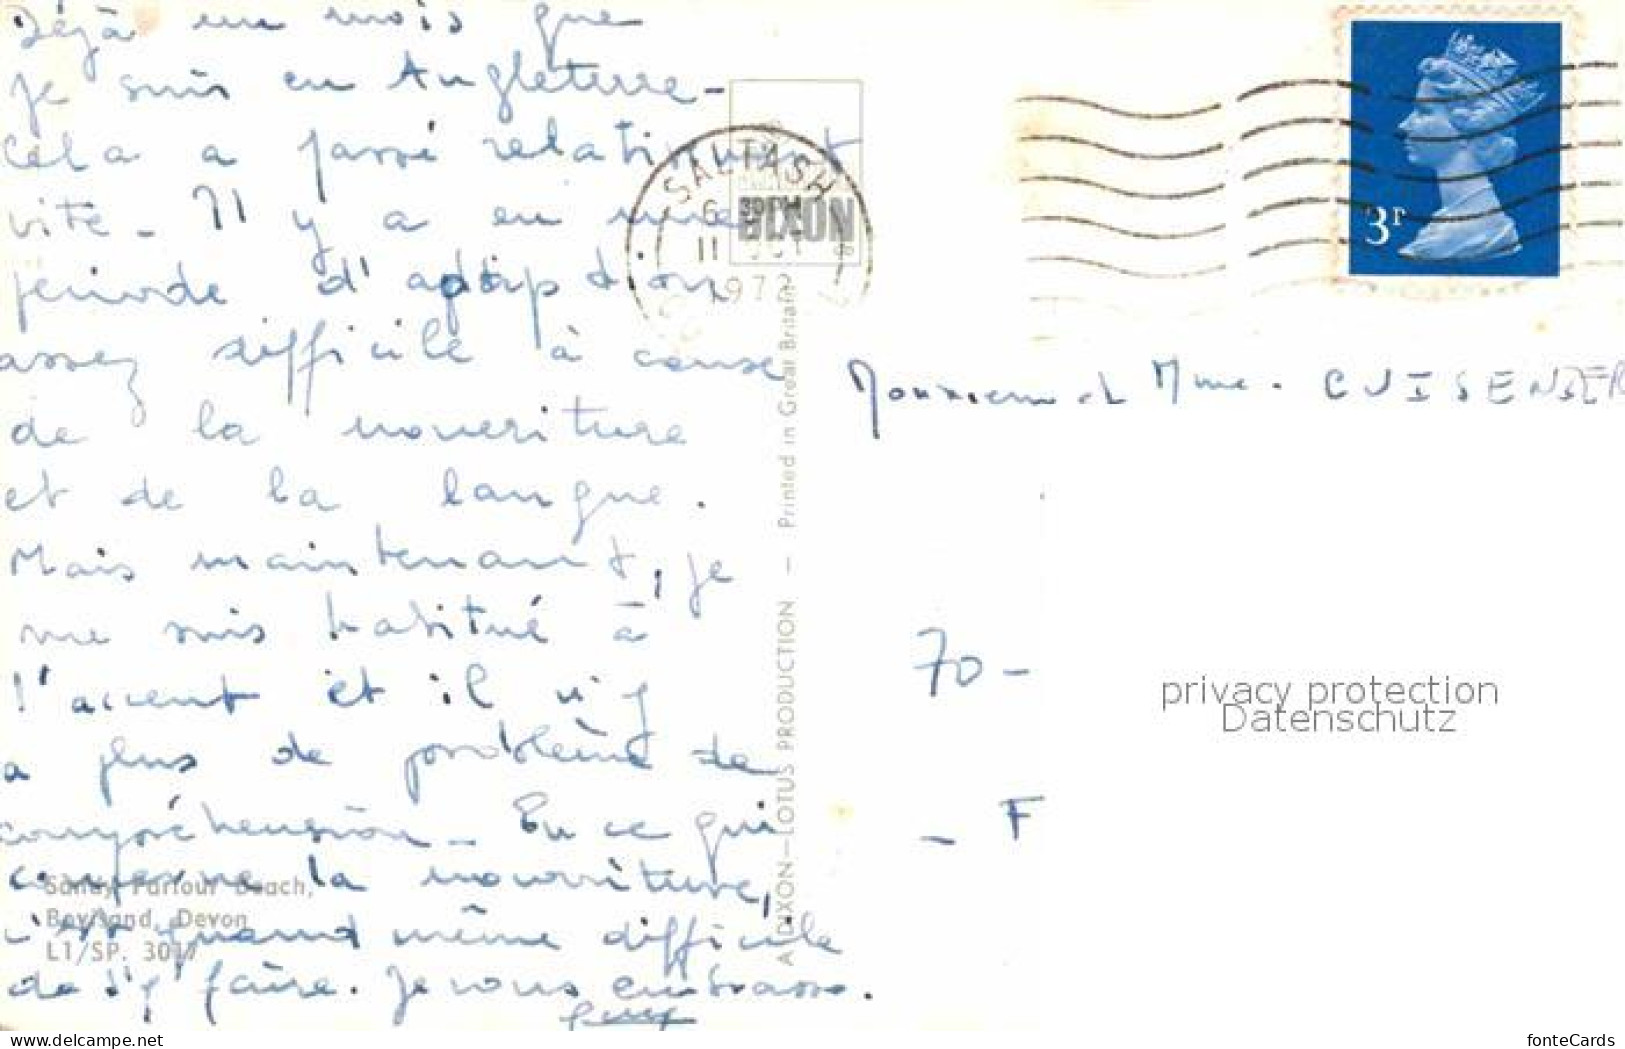 Déjà un mois que
je suis en Angleterre -
Cela a passé relativement
vite - Il y a eu une
période d'adaption
assez difficile à cause
de la nourriture
et de la langue.
Mais maintenant, je
me suis habitué à
l'accent et il n'y
a plus de problème de
compréhension - En ce qui
concerne la nourriture,
c'est quand même difficile
de s'y faire. Je vous embrasse.
Sandy Parlour Beach,
Bovisand, Devon
L1/SP. 3017
A DIXON—LOTUS PRODUCTION — Printed in Great Britain
DIXON
SALTASH
6 PM
11
1972
3P
Monsieur et Mme. CUISENIER
70 -
- F
privacy protection
Datenschutz
www.ansichtskarten-center.de
fonteCards